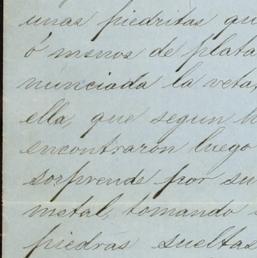 unas piedritas qu
ó menos de plata
nunciada la veta,
ella, que segun h
encontraron luego
sorprende por su
metal, tomando
piedras sueltas